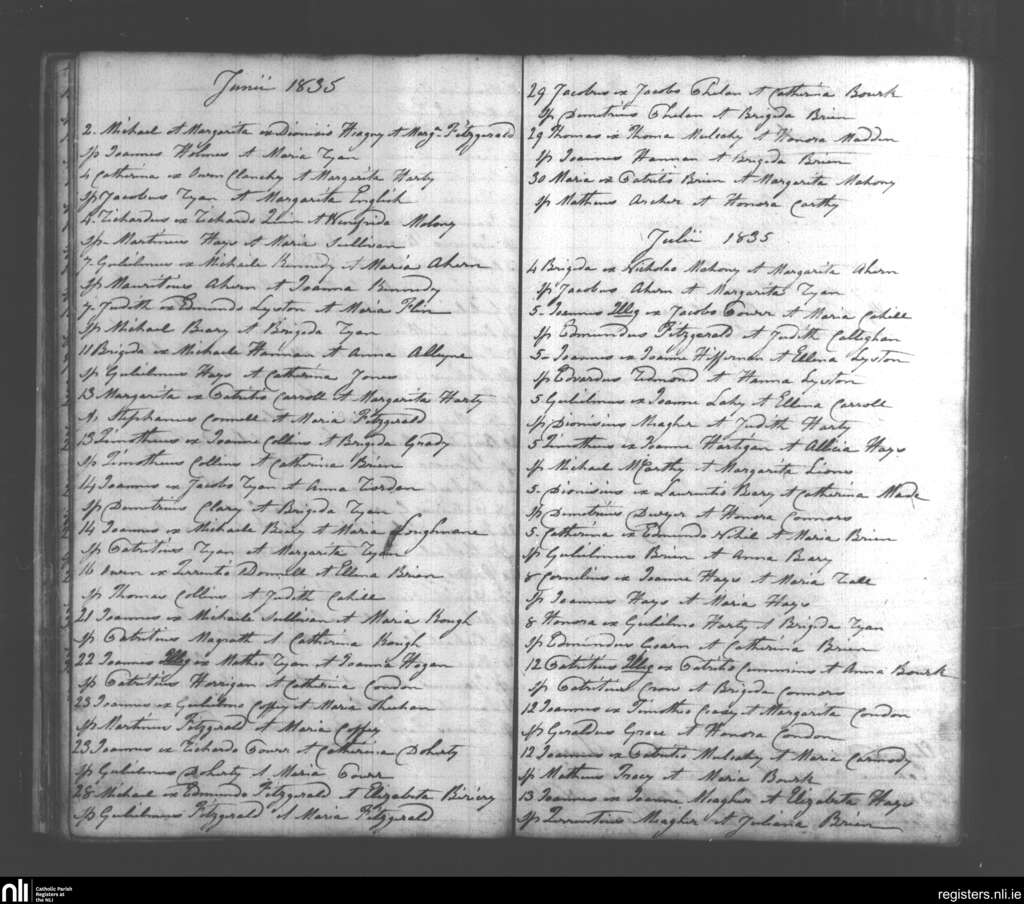 Junii 1835
2 Michael et Margarita ex Dionisio Heagny et Marg: Fitzgerald
Sp Joannes Holmes et Maria Ryan
4 Catherina ex Owen Clanchy et Margarita Harty
Sp Jacobus Ryan et Margarita English
4 Richardus ex Richardo Quin et Winifrida Molony
Sp Martinus Hays et Maria Sullivan
7 Gulielmus ex Michaele Kennedy et Maria Ahern
Sp Mauritius Ahern et Joanna Kennedy
7 Judith ex Edmundo Lyston et Maria Flin
Sp Michael Beary et Brigida Ryan
11 Brigida ex Michaele Hannan et Anna Alleyne
Sp Gulielmus Hays et Catherina Jones
13 Margarita ex Patritio Carroll et Margarita Harty
Stephanus Connell et Maria Fitzgerald
13 Timotheus ex Joanne Collins et Brigida Grady
Sp Timotheus Collins et Catherina Brien
14 Joannes ex Jacobo Ryan et Anna Riordan
Sp Demetrius Clary et Brigida Ryan
14 Joannes ex Michaele Beary et Maria Loughnane
Sp Patritius Ryan et Margarita Ryan
16 Owen ex Terrentio Donnell et Ellena Brien
Sp Thomas Collins et Judith Cahill
21 Joannes ex Michaele Sullivan et Maria Keogh
Sp Patritius Magrath et Catherina Keogh
22 Joannes Illeg ex Matheo Ryan et Joanna Hogan
Sp Patritius Horrigan et Catherina Condon
23 Joannes ex Gulielmo Coffey et Maria Shehan
Sp Martinus Fitzgerald et Maria Coffey
23 Joannes ex Richardo Pourr et Catherina Doherty
Sp Gulielmus Doherty et Maria Pourr
28 Michael ex Edmundo Fitzgerald et Elizabeta
Sp Gulielmus Fitzgerald et Maria Fitzgerald
29 Jacobus ex Jacobo Phelan et Catherina Bourk
Sp Demetrius Phelan et Brigida Brien
29 Thomas ex Thoma Mulcahy et Honora Madden
Sp Joannes Hannan et Brigida Brien
30 Maria ex Patritio Brien et Margarita Mahony
Sp Matheus Archer et Honora Carthy
Julii 1835
4 Brigida ex Nicholao Mahony et Margarita Ahern
Sp Jacobus Ahern et Margarita Ryan
5 Joannes Illeg ex Jacobo Pourr et Maria Cahill
Sp Edmundus Fitzgerald et Judith Calleghan
5 Joannes ex Joanne Hiffernan et Ellena Lyston
Sp Edvardus Redmond et Hanna Lyston
5 Gulielmus ex Joanne Lahy et Ellena Carroll
Sp Dionisius Meagher et Judith Harty
5 Timotheus ex Joanne Hartigan et Allicia Hays
Sp Michael McCarthy et Margarita Lions
5 Dionisius ex Laurentio Bary et Catherina Meade
Sp Demetrius Dwyer et Honora Connors
5 Catherina ex Edmundo Nihil et Maria Brien
Sp Gulielmus Brien et Anna Bary
8 Cornelius ex Joanne Hays et Maria Hall
Sp Joannes Hays et Maria Hays
8 Honora ex Gulielmo Harty et Brigida Ryan
Sp Edmundus Gearn et Catherina Brien
12 Patritius Illeg ex Patritio Cummins et Anna Bourk
Sp Patritius Crow et Brigida Connors
12 Joannes ex Timotheo Casey et Margarita Condon
Sp Geraldus Grace et Honora Condon
12 Joannes ex Patritio Mulcahy et Maria Carmody
Sp Matheus Tracy et Maria Bourk
13 Joannes ex Joanne Meagher et Elizabeta Hays
Sp Terrentius Meagher et Juliana Brien
nli
Catholic Parish
Registers at
the NLI
registers.nli.ie